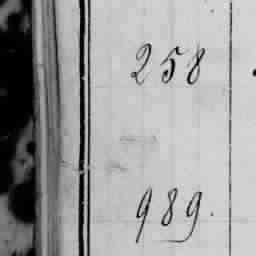 258
989.